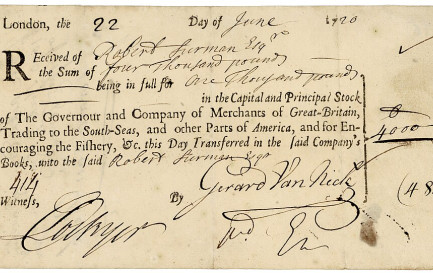 London, the 22 Day of June 1720
Received of Robert Surman Esqr
the Sum of four thousand pounds
being in full for one thousand pounds
in the Capital and Principal Stock
of The Governour and Company of Merchants of Great-Britain,
Trading to the South-Seas, and other Parts of America, and for En-
couraging the Fishery, &c. this Day Transferred in the said Company's
Books, unto the said Robert Surman Esqr
4000
414
Witness, By Gerard Van Neck
(48